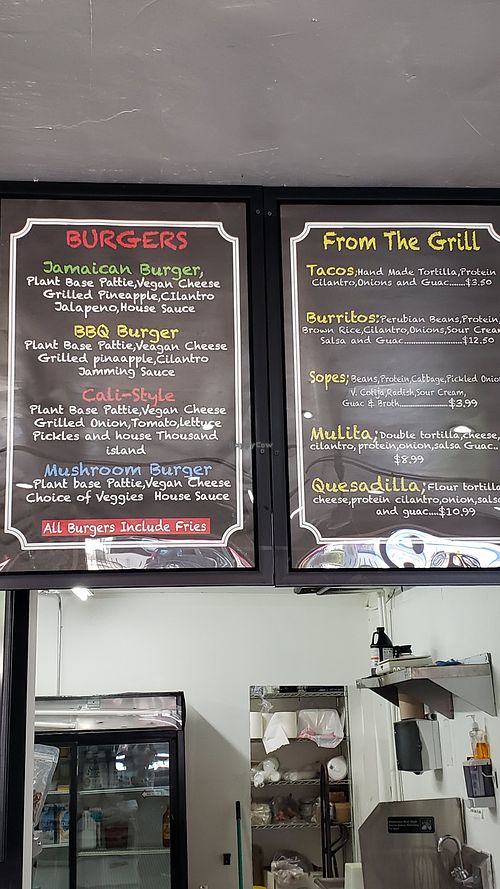 BURGERS
Jamaican Burger,
Plant Base Pattie,Vegan Cheese
Grilled Pineapple,Cilantro
Jalapeno,House Sauce
BBQ Burger
Plant Base Pattie,Veagan Cheese
Grilled pinaapple,Cilantro
Jamming Sauce
Cali-Style
Plant Base Pattie,Vegan Cheese
Grilled Onion,Tomato,lettuce
Pickles and house Thousand
island
Mushroom Burger
Plant base Pattie,Vegan Cheese
Choice of Veggies House Sauce
All Burgers Include Fries
From The Grill
Tacos;Hand Made Tortilla,Protein
Cilantro,Onions and Guac.......$3.50
Burritos;Perubian Beans,Protein,
Brown Rice,Cilantro,Onions,Sour Cream
Salsa and Guac......................$12.50
Sopes;Beans,Protein,Cabbage,Pickled Onion
V. Cotija,Radish,Sour Cream,
Guac & Broth..................$3,99
Mulita;Double tortilla,cheese,
cilantro,protein,onion,salsa Guac..
$8.99
Quesadilla;Flour tortilla
cheese,protein cilantro,onion,salsa
and guac....$10,99
HappyCow